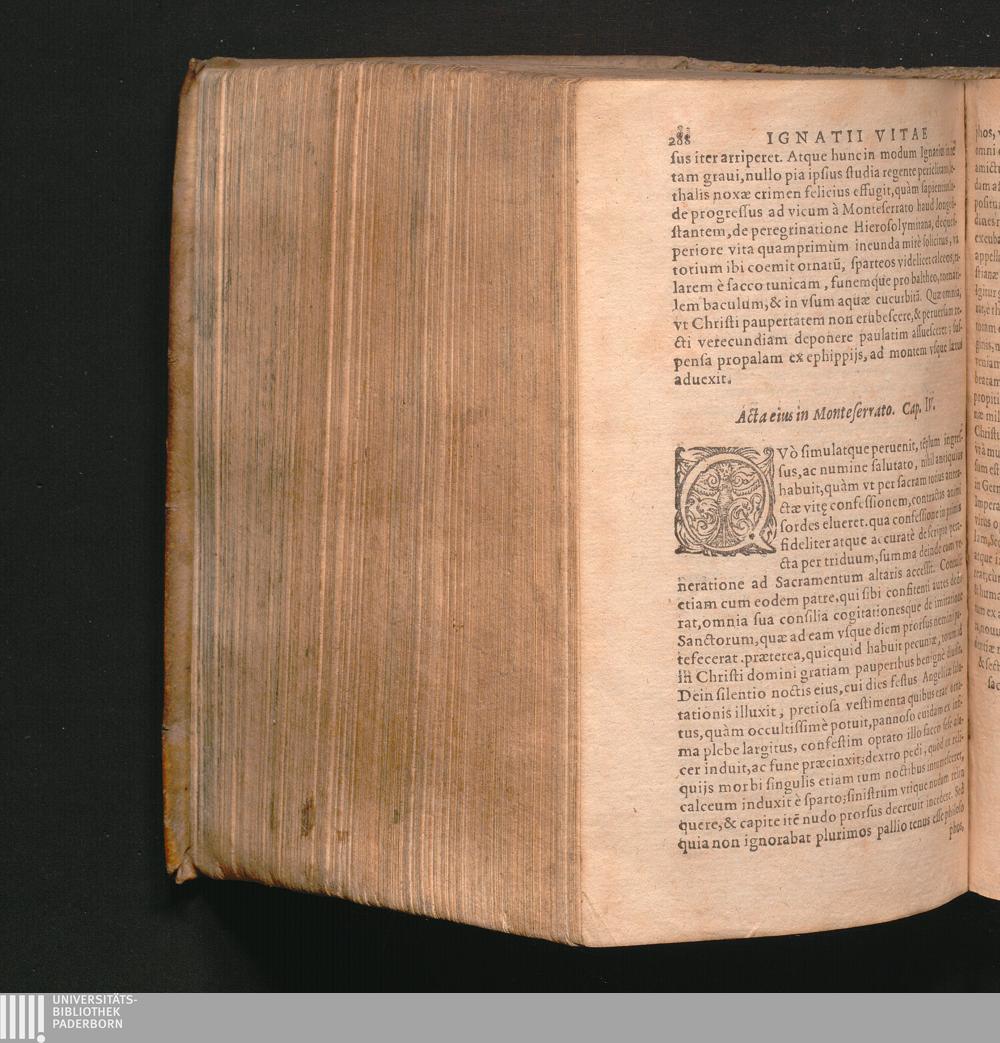 288 IGNATII VITAE
sus iter arriperet. Atque hunc in modum Ignatius in
tam graui, nullo pia ipsius studia regente
thalis noxæ crimen felicius effugit, quàm
de progressus ad vicum à Monteserrato haud
stantem, de peregrinatione Hierosolymitana,
periore vita quamprimùm ineunda mirè solicitus,
totium ibi coemit ornatũ, sparteos videlicet calceos,
larem è sacco tunicam, funemque pro baltheo,
lem baculum, & in vsum aquæ cucurbitã. Quæ omnia,
vt Christi paupertatem non erubescere, & peruersam
cti verecundiam deponere paulatim assuesceret;
pensa propalam ex ephippijs, ad montem vsque lætus
aduexit.
Acta eius in Monteserrato. Cap. IV.
QVò simulatque peruenit, tẽplum ingres-
sus, ac numine salutato, nihil antiquius
habuit, quàm vt per sacram totius
ctæ vitę confessionem, contractas animi
sordes elueret. qua confessione in primis
fideliter atque accuratè descripto
cta per triduum, summa deinde cum ve-
neratione ad Sacramentum altaris accessit.
etiam cum eodem patre, qui sibi confitenti aures dede-
rat, omnia sua consilia cogitationesque de imitatione
Sanctorum, quæ ad eam vsque diem prorsus nemini pa-
tefecerat. præterea, quicquid habuit pecuniæ, totum id
in Christi domini gratiam pauperibus benignè
Dein silentio noctis eius, cui dies festus Angelicæ salu-
tationis illuxit, pretiosa vestimenta quibus erat orna-
tus, quàm occultissimè potuit, pannoso cuidam ex infi-
ma plebe largitus, confestim optato illo sacco sese ala-
cer induit, ac fune præcinxit; dextro pedi, quòd ex reli-
quijs morbi singulis etiam tum noctibus intumesceret,
calceum induxit è sparto; sinistrum vtique nudum relin
quere, & capite itẽ nudo prorsus decreuit incedere. Sed
quia non ignorabat plurimos pallio tenus esse philoso
phos,
UNIVERSITÄTS-
BIBLIOTHEK
PADERBORN